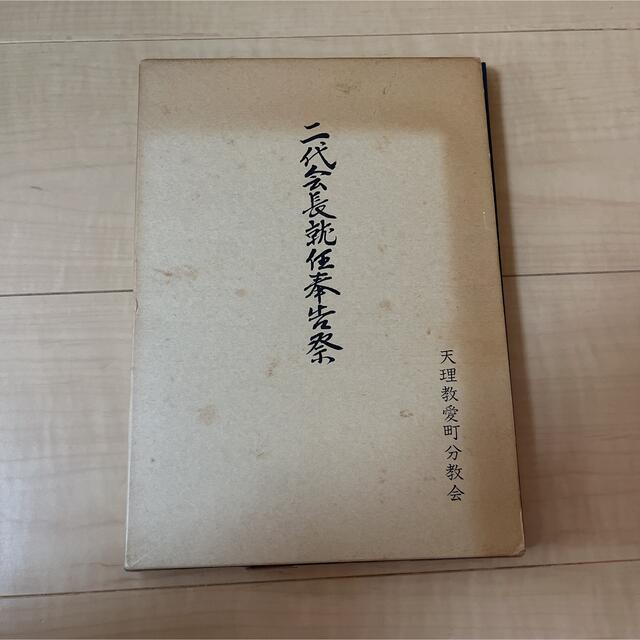 二代会長就任奉告祭
天理教愛町分教会